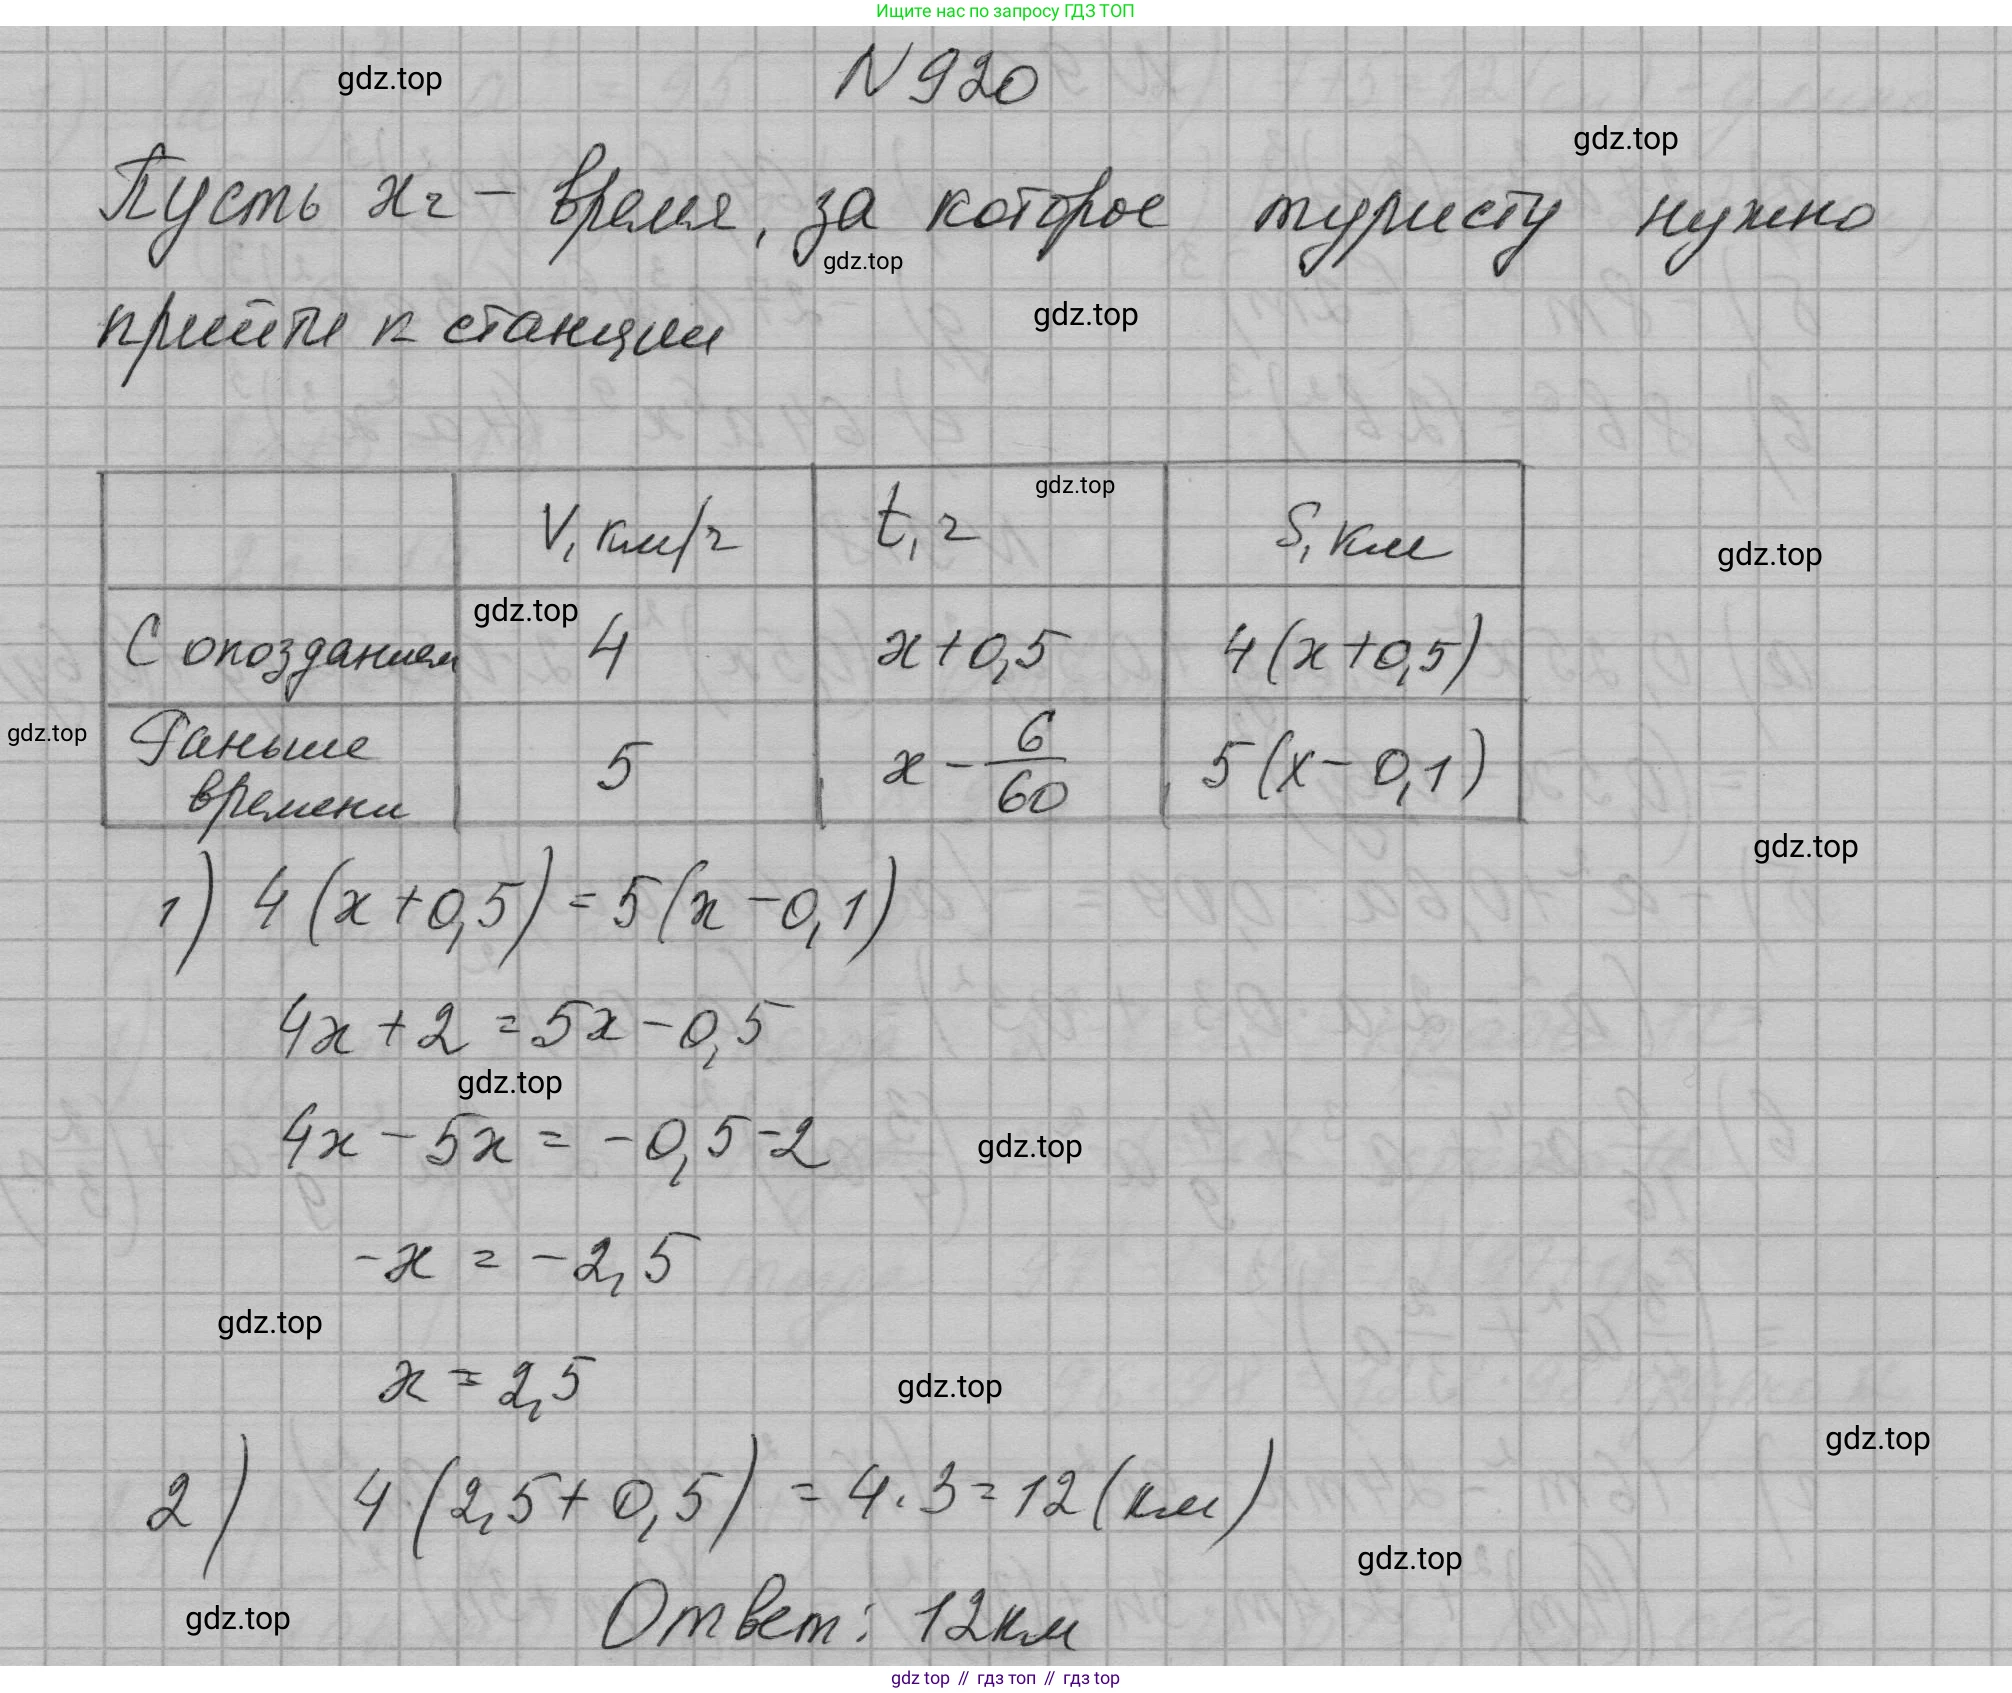 Ищите нас по запросу ГДЗ ТОП
N 920
gdz.top
gdz.top
Пусть x ч – время, за которое туристу нужно
gdz.top
прийти к станции
gdz.top
V, км/ч t, ч S, км
gdz.top
gdz.top
gdz.top
С опозданием 4 x+0,5 4(x+0,5)
gdz.top
Раньше времени 5 x - 6/60 5(x-0,1)
gdz.top
1) 4(x+0,5)=5(x-0,1)
4x+2=5x-0,5
gdz.top
4x-5x=-0,5-2
gdz.top
-x=-2,5
gdz.top
x=2,5
gdz.top
gdz.top
2) 4(2,5+0,5)=4·3=12(км)
gdz.top
gdz.top
Ответ: 12км
gdz top // гдз топ // гдз top